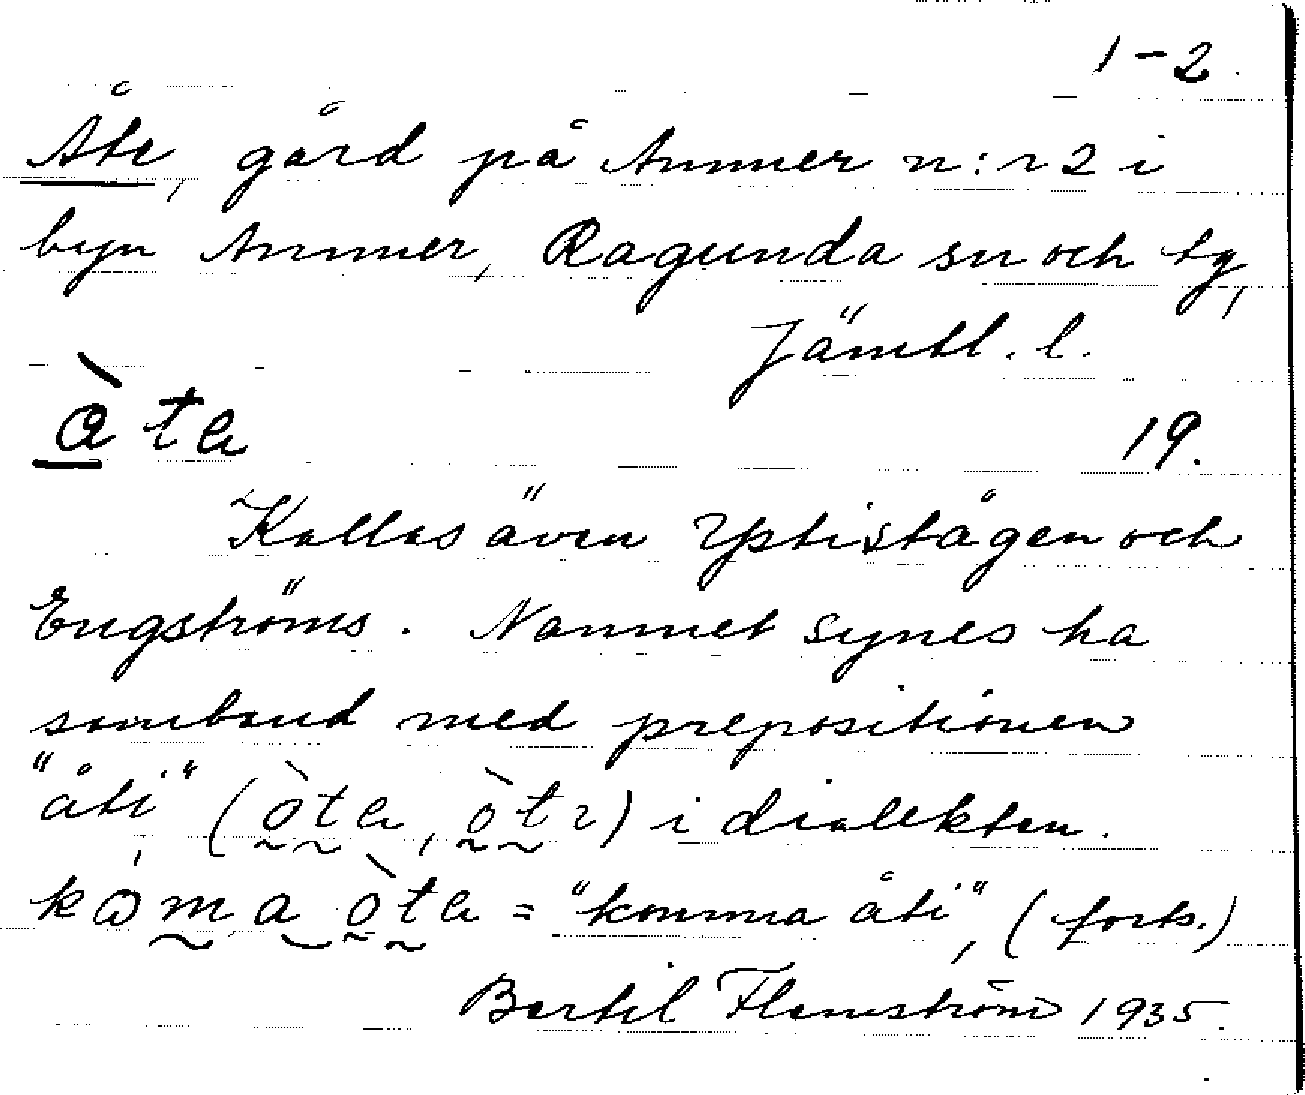 1-2.
Åte, gård på Ammer n:r 2 i
byn Ammer, Ragunda sn och tg,
Jämtl. l.
àte 19.
Kallas även Yptistågen och
Engströms. Namnet synes ha
samband med prepositionen
"åti" (òte, òtı) i dialekten.
kòma òte = "komma åti", (forts.)
Bertil Flemström 1935.